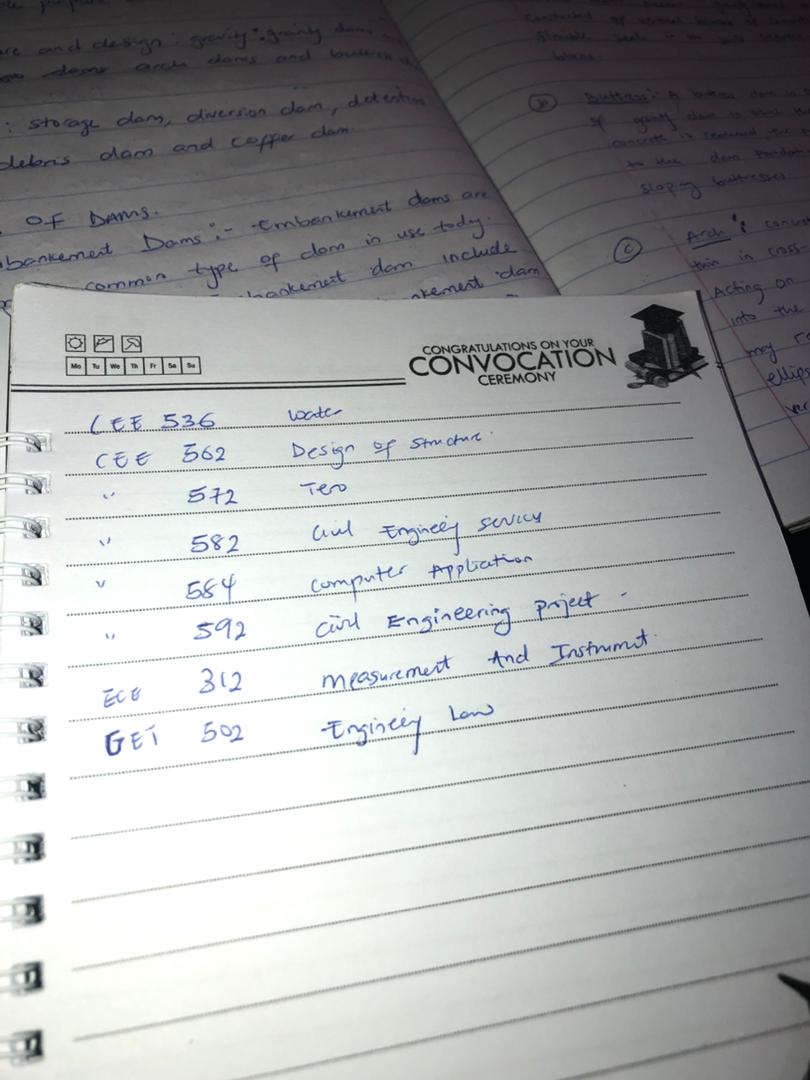 and design: gravity: gravity dams
dams arch dams and
: storage dam, diversion dam, detention
debris dam and copper dam.
OF DAMS.
bankement Dams:- Embankement dams are
common type of dam in use today.
bankement dam include
nkement dam
Buttress: A buttress dam is
of gravity dam in which
concrete is reduced
to the dam
sloping buttresses.
C
Arch:
thin in cross-
Acting on
into the
may
ellips
Mo Tu We Th Fr Sa Su
CONGRATULATIONS ON YOUR
CONVOCATION
CEREMONY
CEE 536 water
CEE 562 Design of structure.
" 572 Tero
" 582 Civil Engineeg services
" 584 computer Application
" 592 Civil Engineering project -
ECE 312 Measurement And Instrumt.
GET 502 Engineeg Law